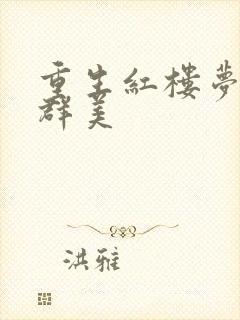 重生紅樓夢
群美
洪雅